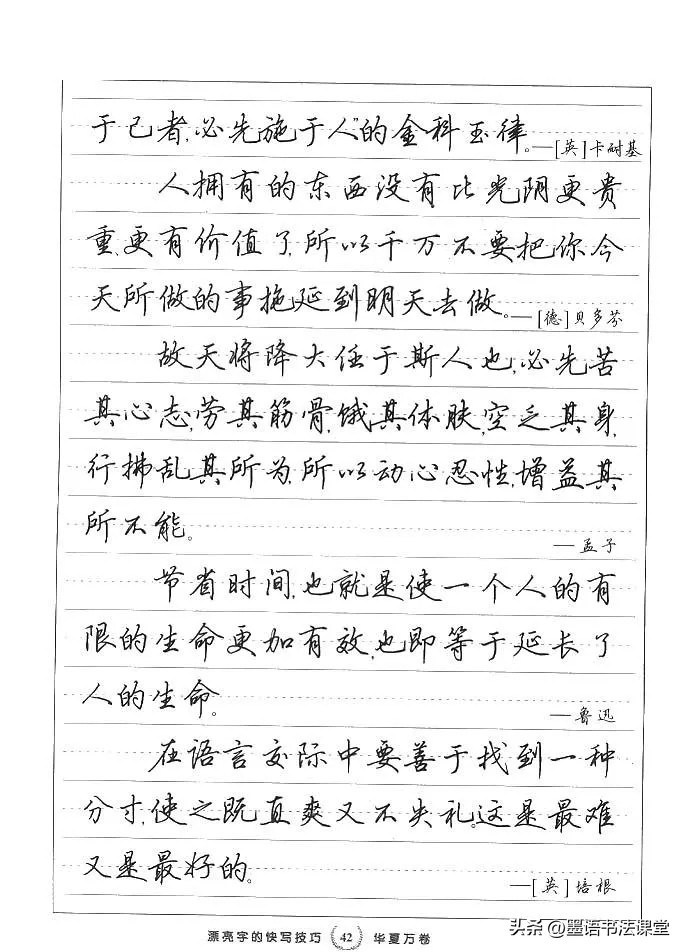 于己者,必先施于人”的金科玉律。—[英]卡耐基
人拥有的东西没有比光阴更贵
重,更有价值了,所以千万不要把你今
天所做的事拖延到明天去做。—[德]贝多芬
故天将降大任于斯人也,必先苦
其心志,劳其筋骨,饿其体肤,空乏其身,
行拂乱其所为,所以动心忍性,增益其
所不能。
—孟子
节省时间,也就是使一个人的有
限的生命更加有效,也即等于延长了
人的生命。
—鲁迅
在语言交际中要善于找到一种
分寸,使之既直爽又不失礼,这是最难
又是最好的。
—[英]培根
漂亮字的快写技巧 42 华夏万卷
头条@墨语书法课堂